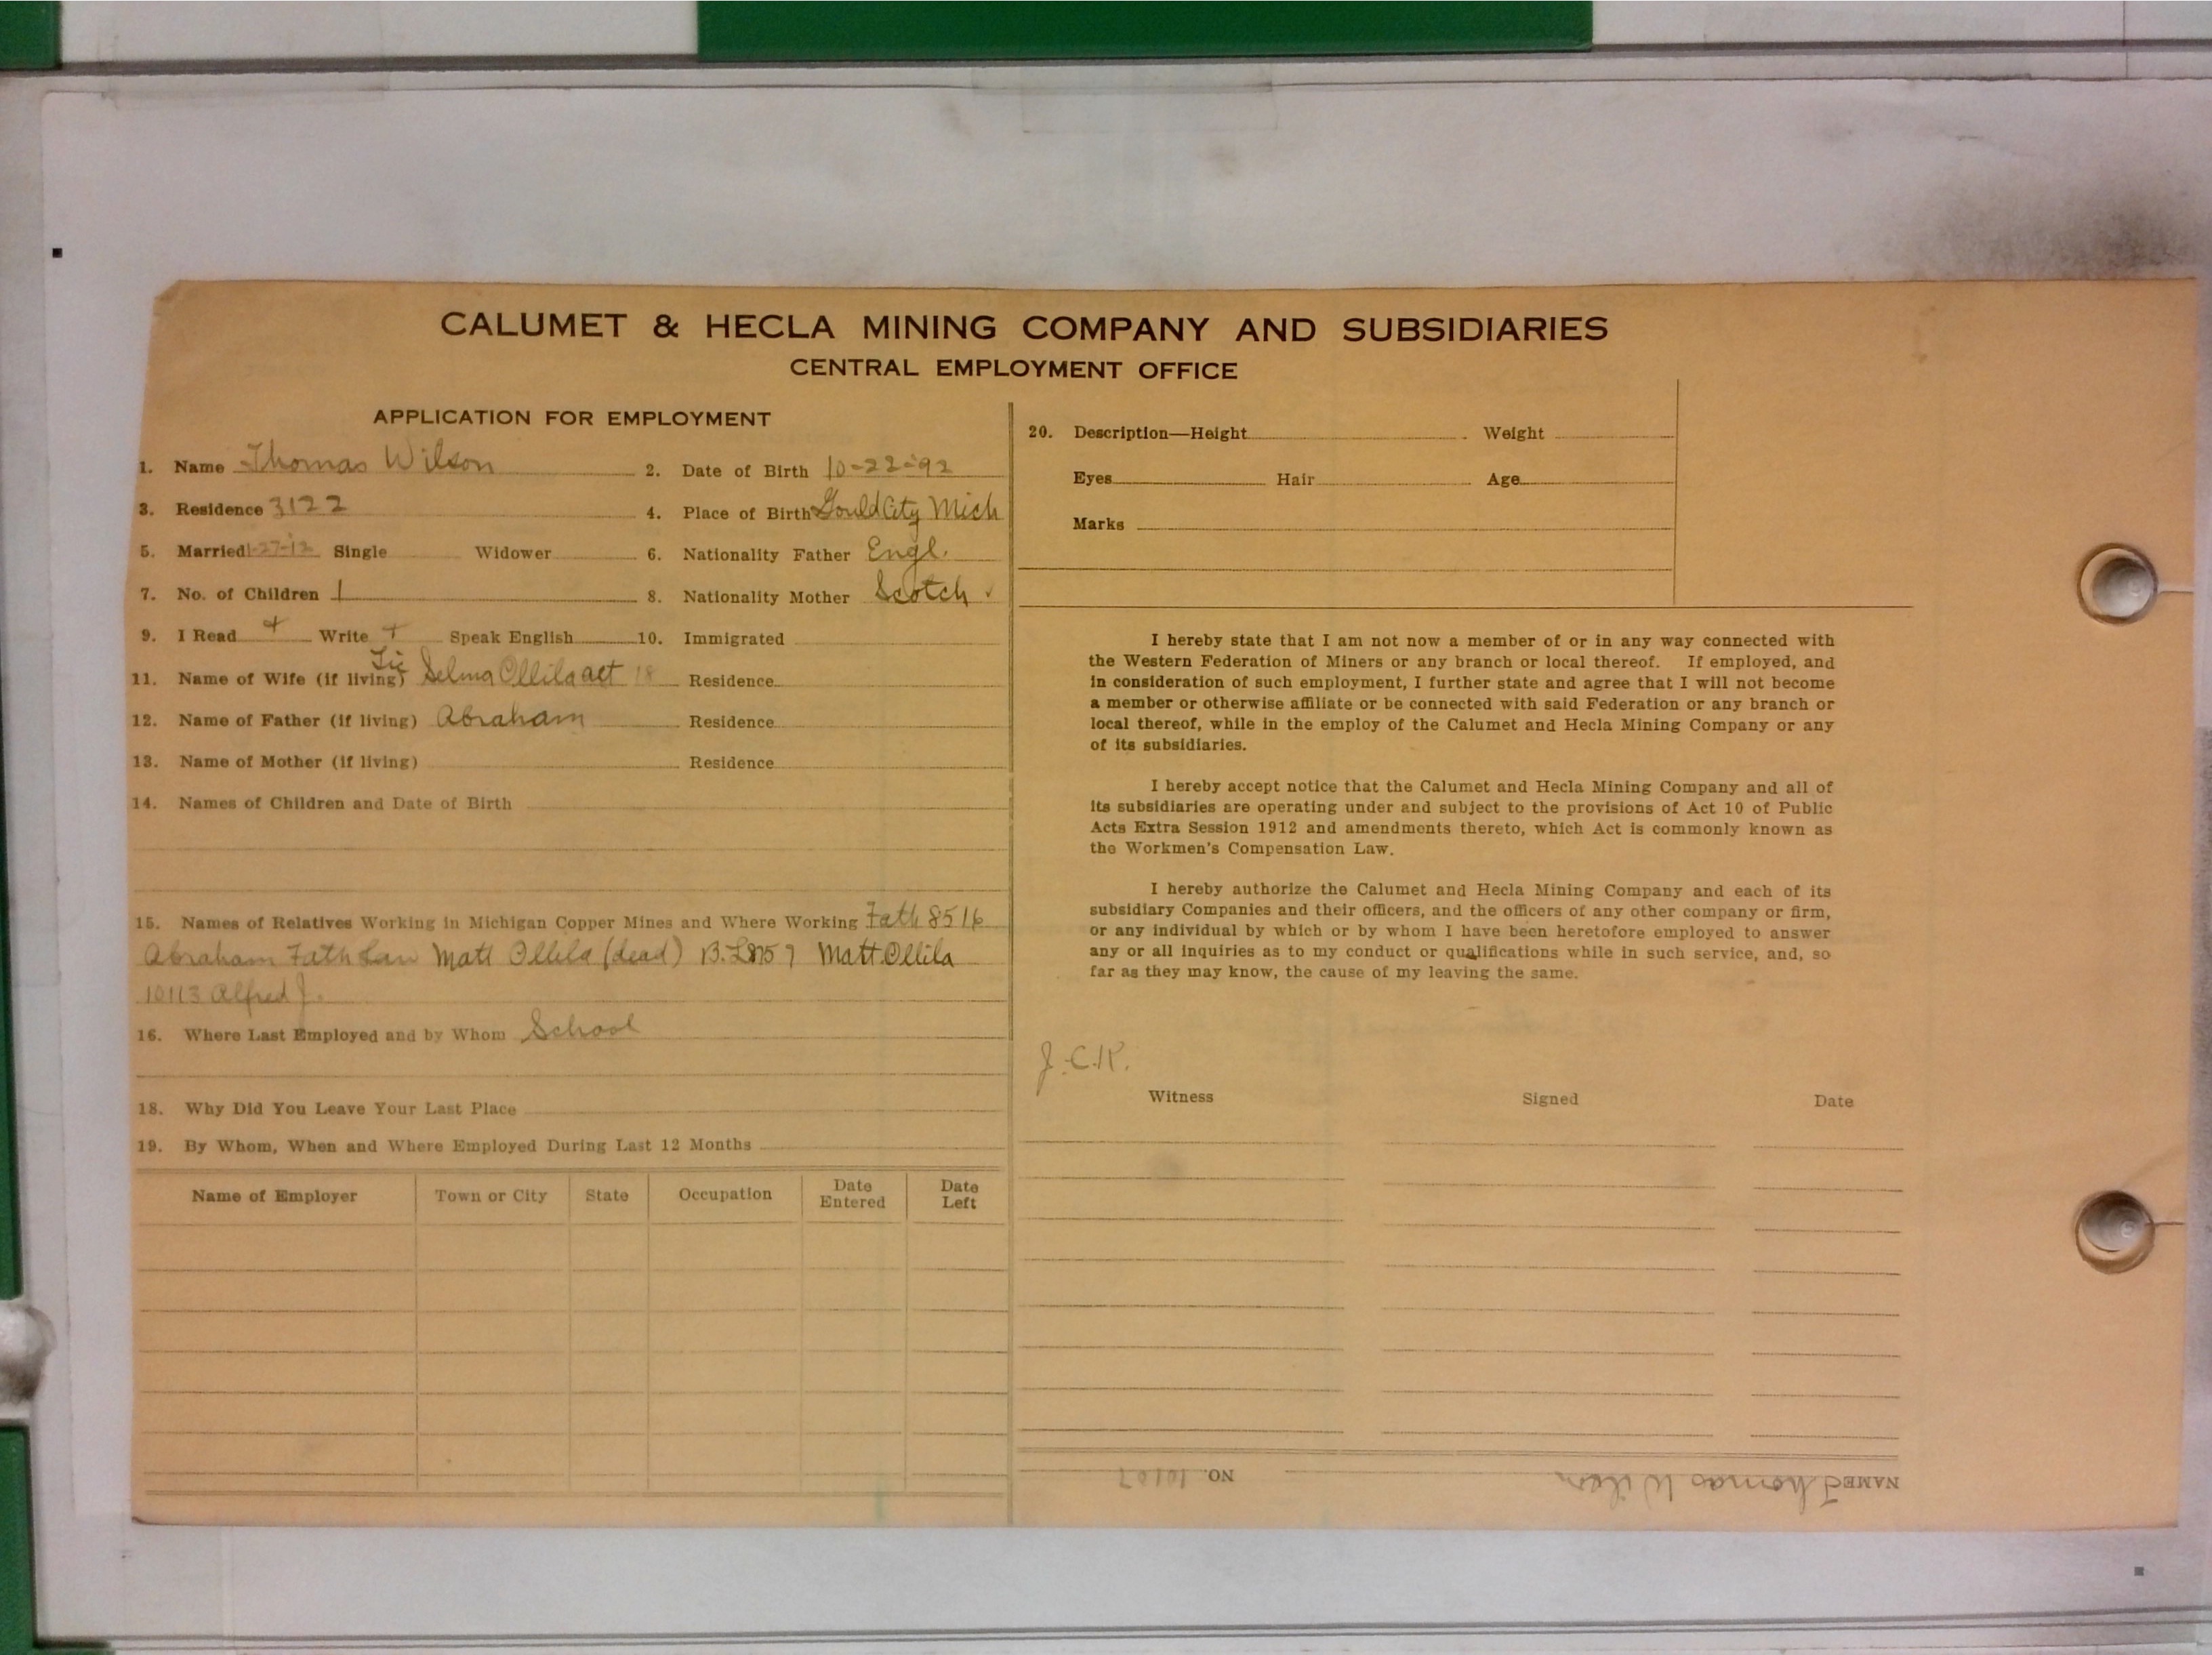 CALUMET & HECLA MINING COMPANY AND SUBSIDIARIES
CENTRAL EMPLOYMENT OFFICE
APPLICATION FOR EMPLOYMENT
1. Name Thomas Wilson 2. Date of Birth 10-22-92
3. Residence 3122 4. Place of Birth Gould City Mich
5. Married 1-27-12 Single Widower 6. Nationality Father Engl.
7. No. of Children 1 8. Nationality Mother Scotch ✓
9. I Read + Write + Speak English 10. Immigrated
Lic
11. Name of Wife (if living) Selma Ollila aet 18 Residence
12. Name of Father (if living) Abraham Residence
13. Name of Mother (if living) Residence
14. Names of Children and Date of Birth
15. Names of Relatives Working in Michigan Copper Mines and Where Working Fath 8516
Abraham Fath Law Matt Ollila (dead) B.L. Matt Ollila
10113 Alfred J.
16. Where Last Employed and by Whom School
18. Why Did You Leave Your Last Place
19. By Whom, When and Where Employed During Last 12 Months
Name of Employer Town or City State Occupation Date Entered Date Left
20. Description—Height Weight
Eyes Hair Age
Marks
I hereby state that I am not now a member of or in any way connected with
the Western Federation of Miners or any branch or local thereof. If employed, and
in consideration of such employment, I further state and agree that I will not become
a member or otherwise affiliate or be connected with said Federation or any branch or
local thereof, while in the employ of the Calumet and Hecla Mining Company or any
of its subsidiaries.
I hereby accept notice that the Calumet and Hecla Mining Company and all of
its subsidiaries are operating under and subject to the provisions of Act 10 of Public
Acts Extra Session 1912 and amendments thereto, which Act is commonly known as
the Workmen's Compensation Law.
I hereby authorize the Calumet and Hecla Mining Company and each of its
subsidiary Companies and their officers, and the officers of any other company or firm,
or any individual by which or by whom I have been heretofore employed to answer
any or all inquiries as to my conduct or qualifications while in such service, and, so
far as they may know, the cause of my leaving the same.
J.C.K.
Witness Signed Date
NAME Thomas Wilson NO. 10107